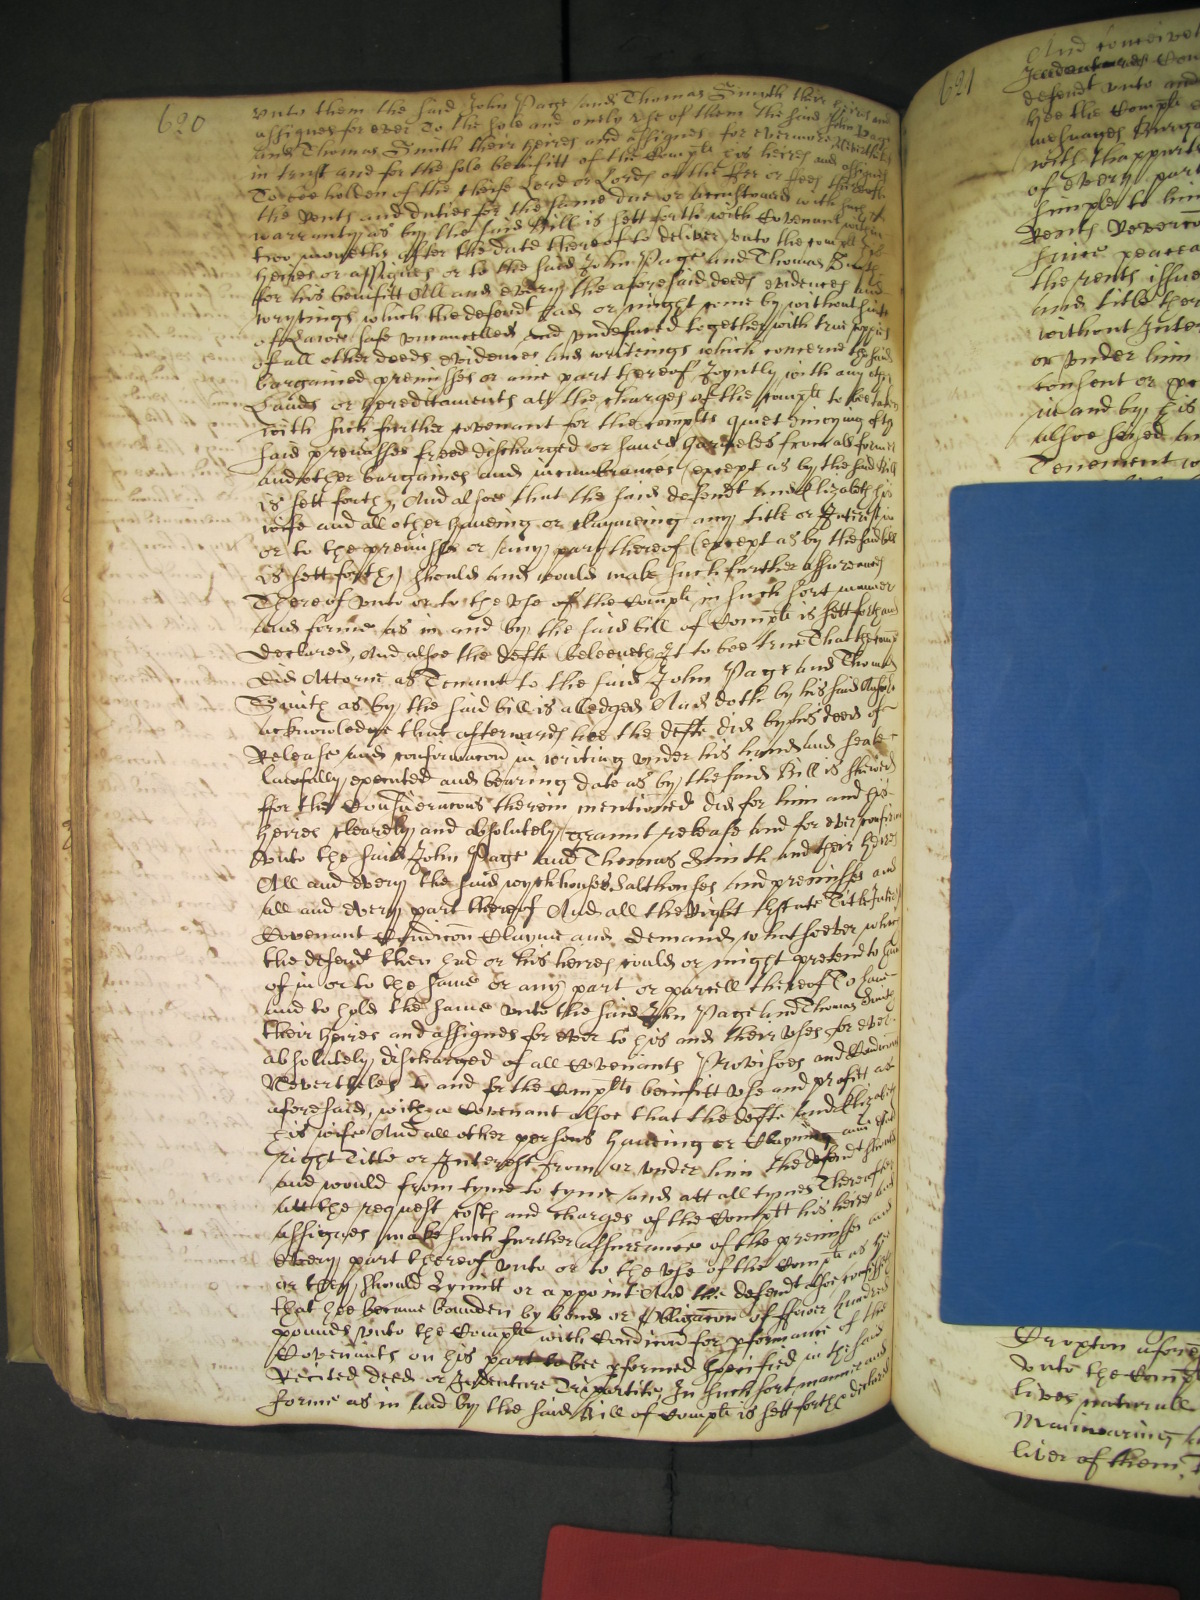 620
vnto them the said John Page and Thomas Smith their heires and
assignes for ever To the sole and onely vse of them the said John Page
and Thomas Smith their heires and assignes for evermore Nevertheles
in trust and for the sole benifitt of the Complt his heires and assignes
To bee holden of the cheife Lord or Lords of the ffee or fees thereof
the rents and duties for the same due or accustomed with such
warranty as by the said Bill is sett forth with Covenant within
two moneths after the date thereof to deliver vnto the Complt his
heires or assignes or to the said John Page and Thomas Smith
for his benifitt All and every the aforesaid deeds evidences and
wrytings which the defendt had or might come by without suite
of Lawe safe vncancelled and vndefaced together with true Coppies
of all other deeds evidences and writeings which concerne the said
bargained premisses or anie part thereof Joyntly with any other
Lands or hereditaments att the charges of the Complt to bee taken
with such further covenant for the Complts quiet enioying of the
said premisses freed discharged or saved harmeles from all former
and other bargaines and incumbrances (except as by the said Bill
is sett forth) And alsoe that the said defendt and Elizabeth his
wife and all other haveing or claymeing any title or Interest in
or to the premisses or any part thereof (except as by the said bill
is sett forth) should and would make such further assurances
Thereof vnto or to the vse of the Complt in such sort manner
and forme as in and by the said bill of Complt is sett forth and
declared, And alsoe the defte beleeveth It to bee true That the tennts
did Attorne as Tenant to the said John Page and Thomas
Smith as by the said bill is alledged And doth by his said Answere
acknowledge that afterwards hee the defte did by his deeds of
Release and confirmacon in writing vnder his hand and seale
lawfully executed and bearing date as by the said Bill is shewed
ffor the Consideracons therein mentioned did for him and his
heires cleerely and absolutely grannt release and for ever confirme
vnto the said John Page and Thomas Smith and their heires
All and every the said wychhouses Salthouses and premisses and
all and every part thereof And all the Right Estate Title Interest
Covenant Condicon Clayme and demand whatsoever which
the defendt then had or his heires could or might pretend to have
of in or to the same or any part or parcell thereof To have
and to hold the same vnto the said John Page and Thomas Smith
their heires and assignes for ever to his and their vses for ever
absolutely discharged of all Covenants Provisoes and Condicons
Nevertheles to and for the Complts benifitt vse and profitt as
aforesaid, with a Covenant alsoe that the defte and Elizabeth
his wife And all other persons haveing or Clayming anie Estate
right Title or Interest from or vnder him the defendt should
and would from tyme to tyme and att all tymes Thereafter
att the request costs and charges of the Complt his heires and
assignes make such further assurance of the premisses and
every part thereof vnto or to the vse of the Complt as he
or they should Lymitt or appoint And the defendt alsoe confesseth
that hee became bounden by bond or Obligacon of ffower hundred
pounds vnto the Complt with Condicon for pformance of the
Covenants on his part to bee pformed specified in the said
Recited deed or Indenture Tripartite, In such sort manner and
forme as in and by the said Bill of Complt is sett forth declared
621
And conceivet
Indentures Cov
defendt vnto and
hee the Complt
mesuages Burga
with thappurte
of every part
simple to him
Rents Revercio
since peacea
the rents issue
and title ther
without Inter
or vnder him
consent or pr
in and by his
alsoe seized in
Tenement w
Croxton afore
vnto the Compl
lives naturall
Mainwaring
lives of them